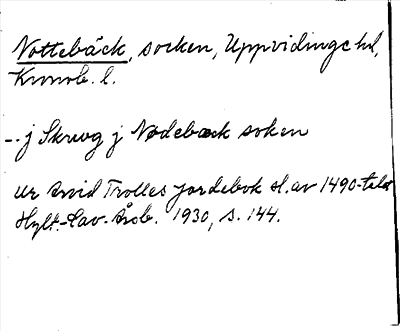 Nottebäck, socken, Uppvidinge hd,
Kronob. l.
-- j Skrug j Nødebæck soken
Ur Arvid Trolles jordebok sl. av 1490-talet
Hylt.-Cav.-Årsb. 1930, s. 144.